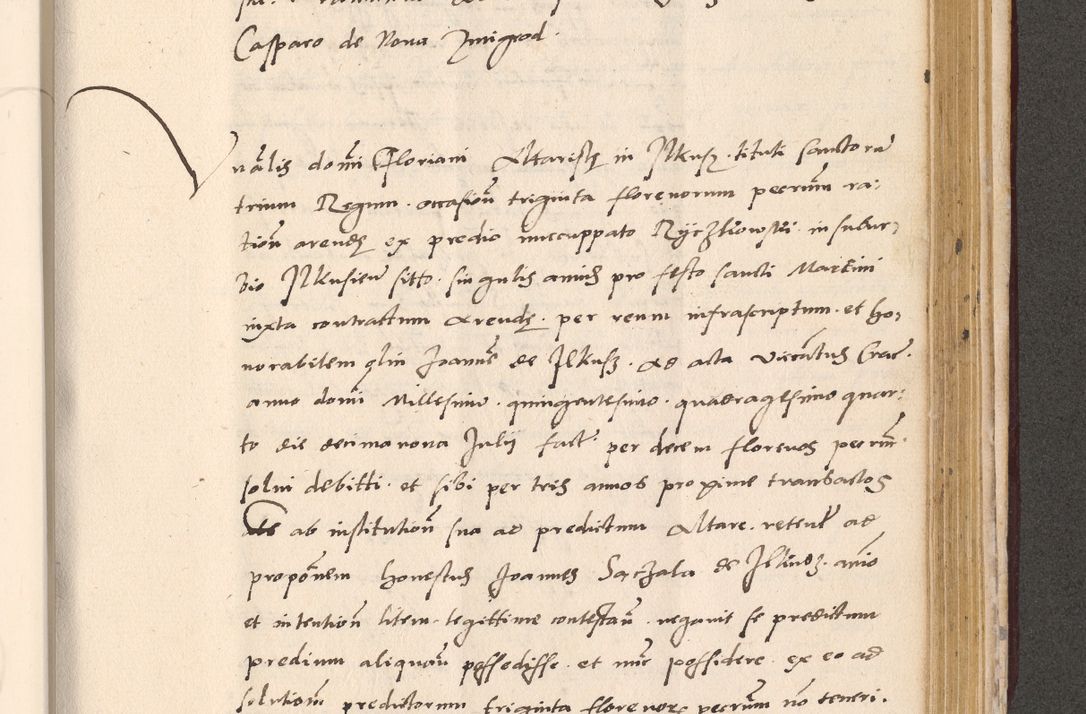 Casparo de Nova Zmigrod.
nālis domī Floriani Altaristę in Jlkusz. tituli sanctorū
trium Regum. occasioñ triginta florenorum pecunm̄ ra:
tioñ arendę ex predio nuccuppato Ryczkowski. in subur:
bio Jlkusieñ sitto. singulis annis pro festo sancti Martini
iuxta contrattum Arendę. per reum infrascriptum. et ho:
norabilem oļim Joannē de Jlkusz. Ad acta vicatus Crac.
anno domī Millesimo. quingentesimo. quadragesimo quar:
to die decimanona Julij fact. per decem florenos pecnm̄.
solui debitti. et sibi per tres annos proxime transactos
ab institutioñ sua ad predictum Altare. reteñt ad
propōnem honestus Joannes Sączala de Jlkusz. aīo
et intentioñ litem. legittime contestañ. negavit se predittum
predium aliquañ possedisse. et nūc possidere. ex eo ad
solutioñ predictorum triginta florenorz pecunm̄ nō teneri.